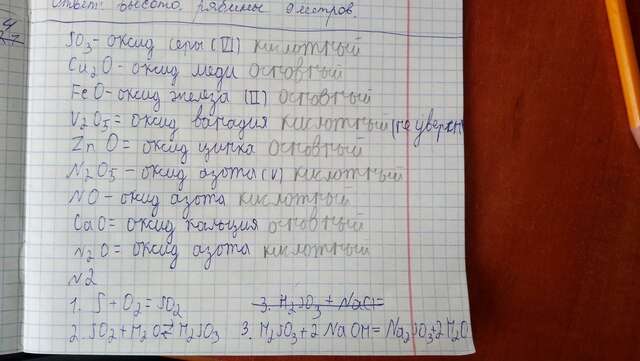 Ответ: высота рябины 9 метров.
SO3 - оксид серы (VI) кислотный
Cu2O - оксид меди основный
FeO - оксид железа (II) основный
V2O5 = оксид ванадия кислотный (не уверен)
ZnO = оксид цинка основный
N2O5 - оксид азота (V) кислотный
NO - оксид азота кислотный
CaO = оксид кальция основный
N2O = оксид азота кислотный
N2
1. S + O2 = SO2 3. H2SO3 + NaCl =
2. SO2 + H2O ⇄ H2SO3 3. H2SO3 + 2NaOH = Na2SO3 + 2H2O